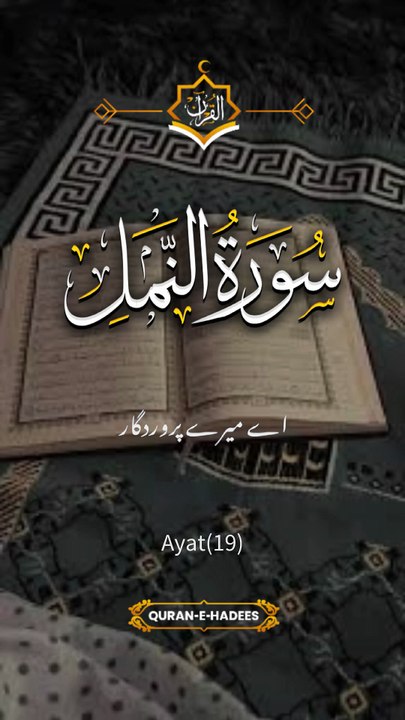 القرآن
سُورَةُ النَّمَلِ
اے میرے پروردگار
Ayat(19)
QURAN-E-HADEES